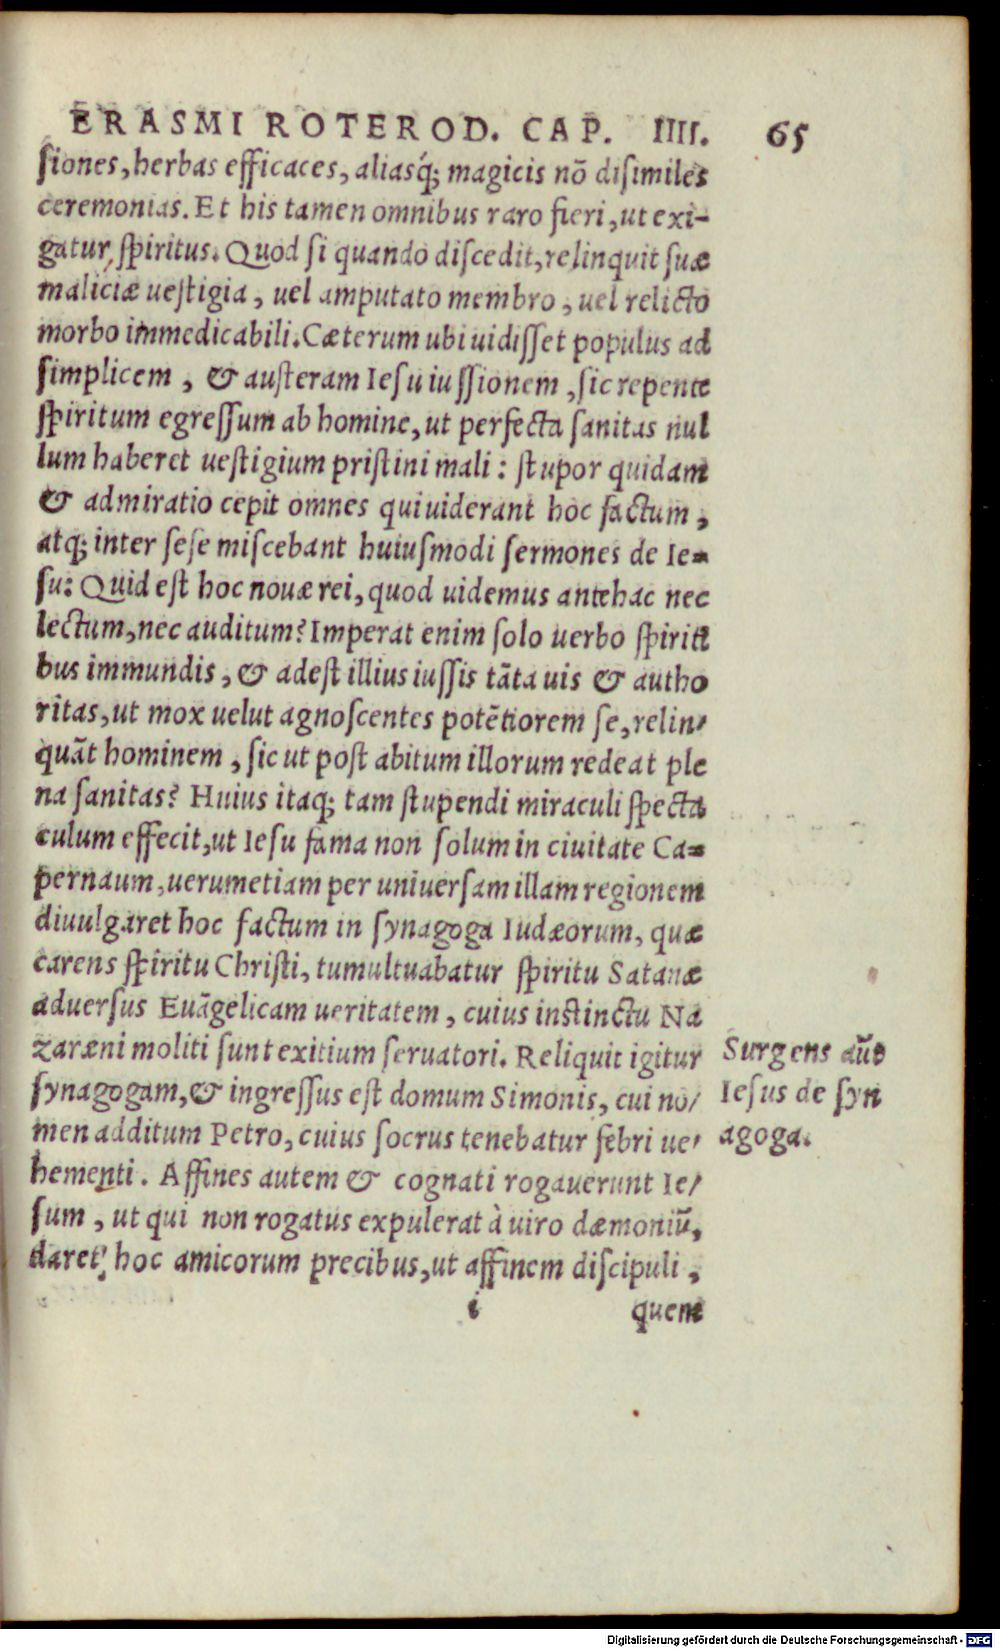 ERASMI ROTEROD. CAP. IIII. 65
ſiones, herbas efficaces, aliasq́; magicis nō diſimiles
ceremonias. Et his tamen omnibus raro fieri, ut exi-
gatur ſpiritus. Quod ſi quando diſcedit, relinquit ſuæ
maliciæ ueſtigia, uel amputato membro, uel relicto
morbo immedicabili. Cæterum ubi uidiſſet populus ad
ſimplicem, & auſteram Ieſu iuſſionem, ſic repente
ſpiritum egreſſum ab homine, ut perfecta ſanitas nul
lum haberet ueſtigium priſtini mali: ſtupor quidam
& admiratio cepit omnes qui uiderant hoc factum,
atq; inter ſeſe miſcebant huiuſmodi ſermones de Ie-
ſu: Quid eſt hoc nouæ rei, quod uidemus antehac nec
lectum, nec auditum? Imperat enim ſolo uerbo ſpiriti
bus immundis, & adeſt illius iuſſis tāta uis & autho
ritas, ut mox uelut agnoſcentes potētiorem ſe, relin-
quāt hominem, ſic ut poſt abitum illorum redeat ple
na ſanitas? Huius itaq; tam ſtupendi miraculi ſpecta
culum effecit, ut Ieſu fama non ſolum in ciuitate Ca-
pernaum, uerumetiam per uniuerſam illam regionem
diuulgaret hoc factum in ſynagoga Iudæorum, quæ
carens ſpiritu Chriſti, tumultuabatur ſpiritu Satanæ
aduerſus Euāgelicam ueritatem, cuius inſtinctu Na
zaræni moliti ſunt exitium ſeruatori. Reliquit igitur
ſynagogam, & ingreſſus eſt domum Simonis, cui no-
men additum Petro, cuius ſocrus tenebatur febri ue-
hementi. Affines autem & cognati rogauerunt Ie-
ſum, ut qui non rogatus expulerat à uiro dæmoniū,
daret hoc amicorum precibus, ut affinem diſcipuli,
i quem
Surgens aūt
Ieſus de ſyn
agoga.
Digitalisierung gefördert durch die Deutsche Forschungsgemeinschaft - DFG